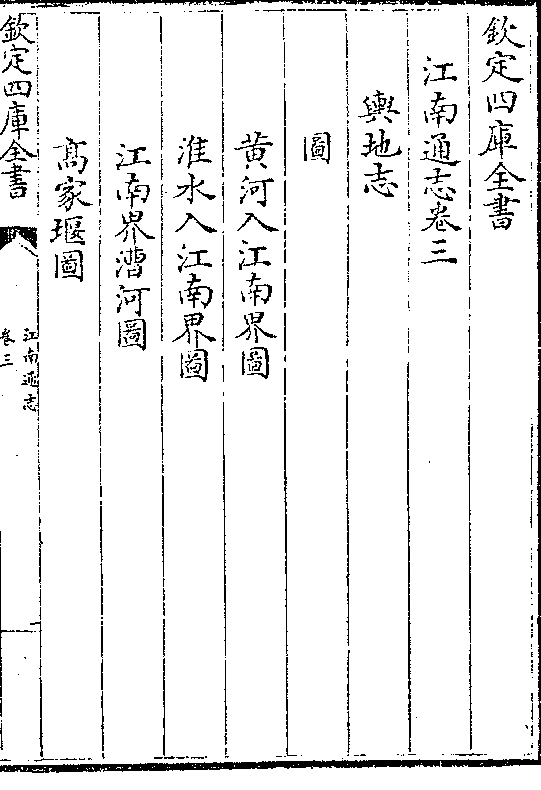 欽定四庫全書
江南通志卷三
輿地志
圖
黄河入江南界圖
淮水入江南界圖
江南界漕河圖
髙家堰圖
欽定四庫全書
江南通志
卷三